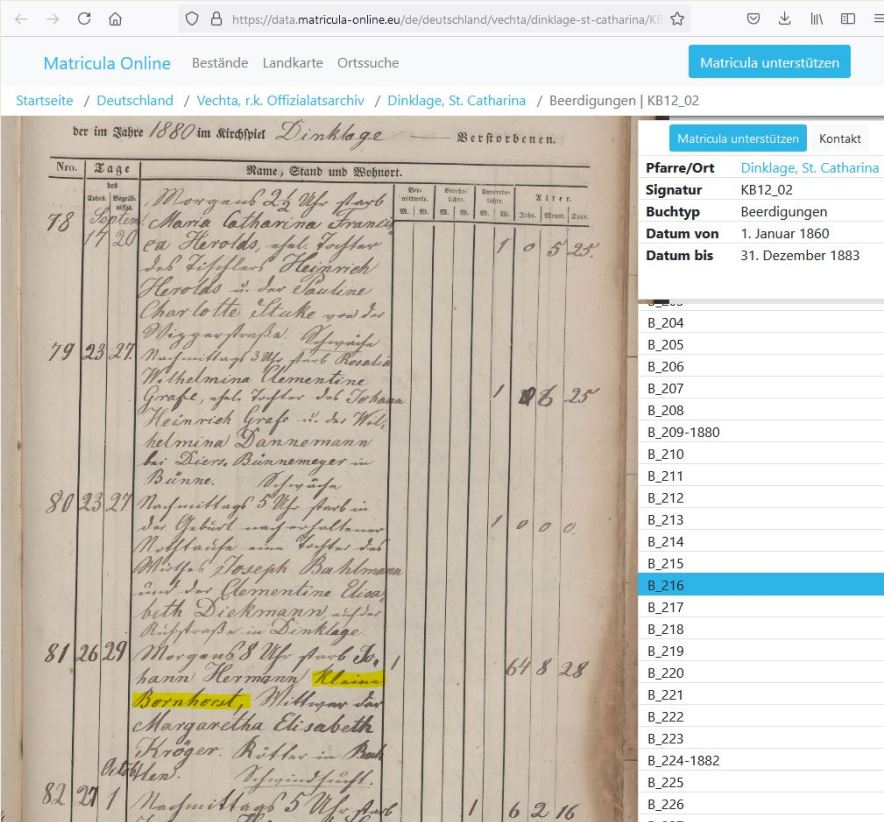 https://data.matricula-online.eu/de/deutschland/vechta/dinklage-st-catharina/KB
Matricula Online
Bestände
Landkarte
Ortssuche
Matricula unterstützen
Startseite / Deutschland / Vechta, r.k. Offizialatsarchiv / Dinklage, St. Catharina / Beerdigungen | KB12_02
der im Jahre 1880 im Kirchspiel Dinklage Verstorbenen.
Nro. Tage Name, Stand und Wohnort.
des
Todes. Alter.
M. W. M. W. M. W. Jahr. Monat. Tage.
Morgens 2½ Uhr starb
78 Septem Maria Catharina Francis
17 20 ca Herolds, ehel. Tochter 1 0 5 25.
des Tischlers Heinrich
Herolds u. der Pauline
Charlotte Stuke von der
Wiggerstraße. Schwäche
79 23 27. Nachmittags 3 Uhr starb Rosalia
Wilhelmina Clementine
Grafe, ehel. Tochter des Johann 1 6 25
Heinrich Grafe u. der Wil-
helmina Dannemann
bei Diers. Bünnemeyer in
Bünne. Schwäche
80 23 27 Nachmittags 5 Uhr starb in
der Geburt nach erhaltener 1 0 0 0.
Nothtaufe eine Tochter des
Wirthes Joseph Bahlmann
und der Clementine Elisa-
beth Diekmann, auf der
in Dinklage.
81 26 29 Morgens 8 Uhr starb Jo- 1
hann Hermann Kleine 64 8 28
Bornhorst, Wittwer der
Margaretha Elisabeth
Kröger. Kötter in Bah
Octob len. Schwindsucht.
82 27 1 Nachmittags 5 Uhr starb 1 6 2 16
Matricula unterstützen
Kontakt
Pfarre/Ort Dinklage, St. Catharina
Signatur KB12_02
Buchtyp Beerdigungen
Datum von 1. Januar 1860
Datum bis 31. Dezember 1883
B_204
B_205
B_206
B_207
B_208
B_209-1880
B_210
B_211
B_212
B_213
B_214
B_215
B_216
B_217
B_218
B_219
B_220
B_221
B_222
B_223
B_224-1882
B_225
B_226